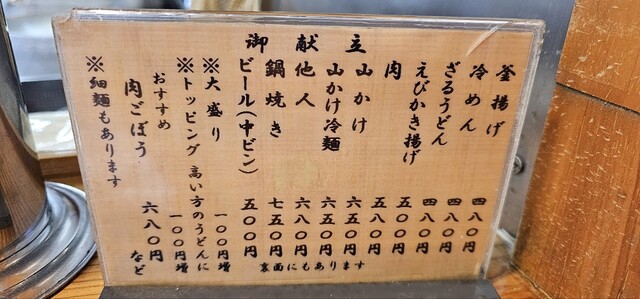 御献立
釜揚げ 四八〇円
冷めん 四八〇円
ざるうどん 四八〇円
えびかき揚げ 五〇〇円
肉 五八〇円
山かけ 六五〇円
山かけ冷麺 六五〇円
他人 六八〇円
鍋焼き 七五〇円
ビール(中ビン) 五〇〇円
※大盛り 一〇〇円増
※トッピング 高い方のうどんに 一〇〇円増
おすすめ
肉ごぼう 六八〇円
など
※細麺もあります
裏面にもあります